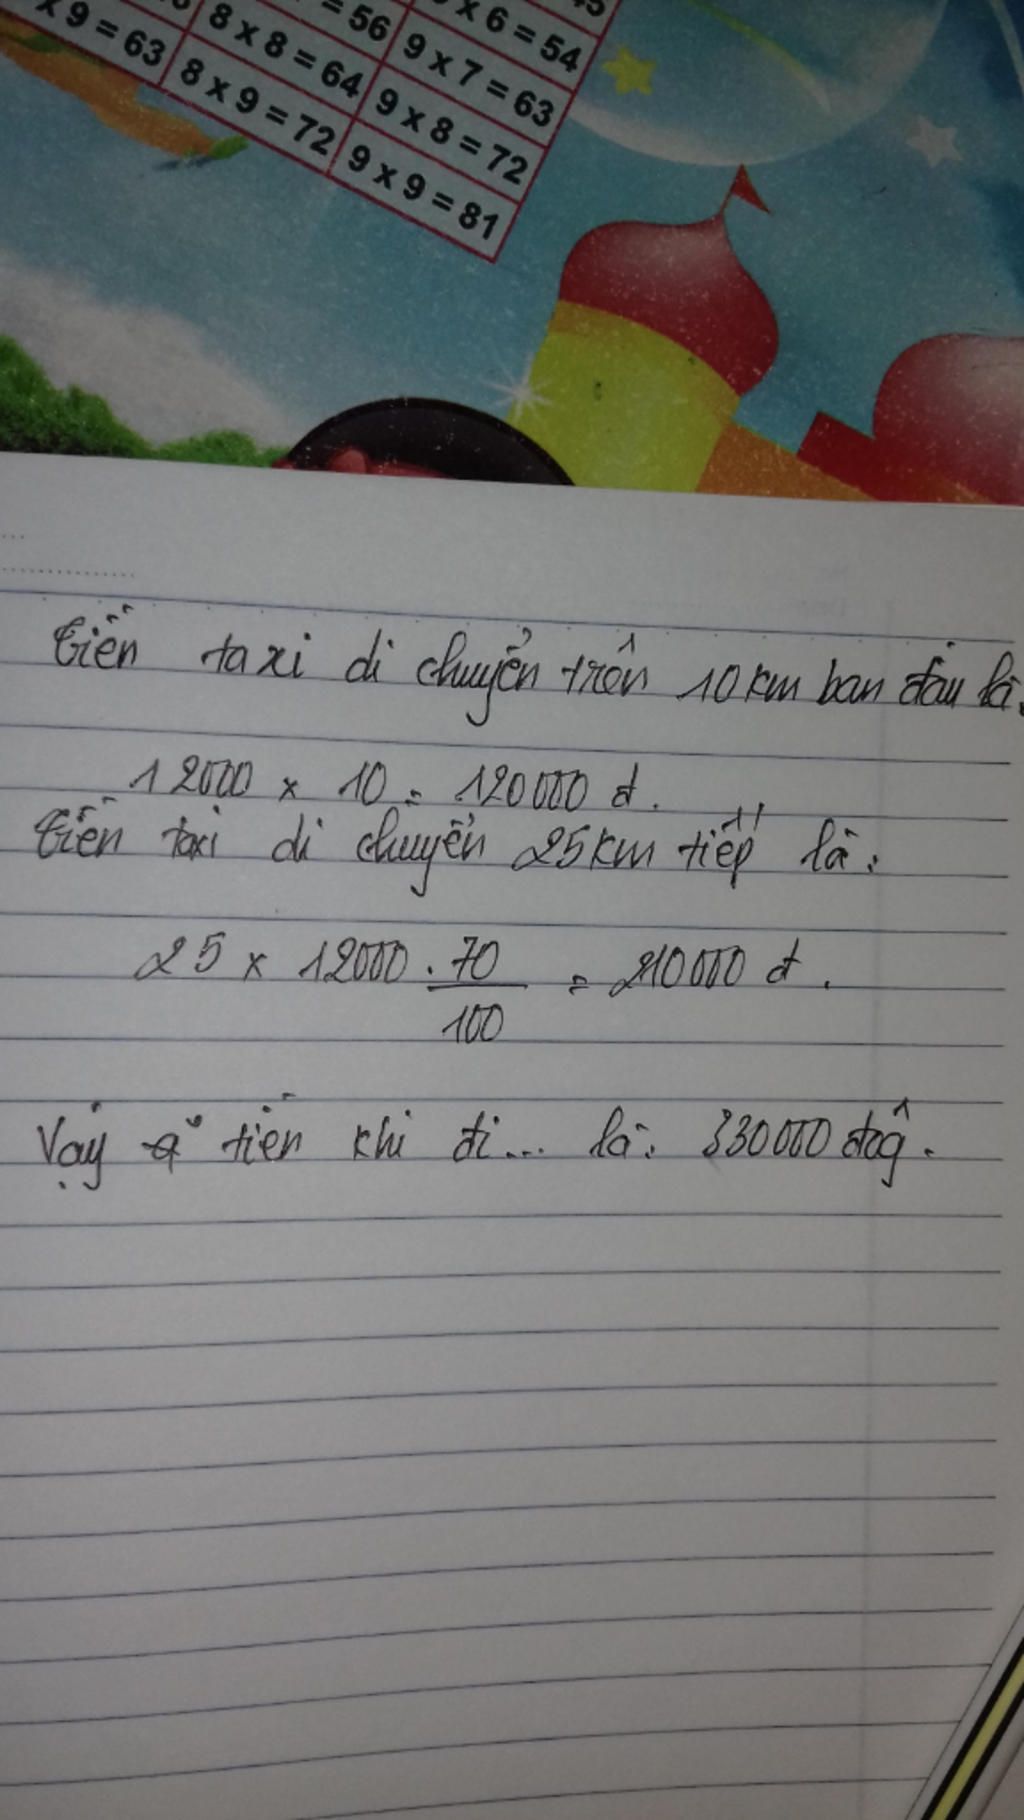 45
= 56
x 6 = 54
x 9 = 63
8 x 8 = 64
9 x 7 = 63
8 x 9 = 72
9 x 8 = 72
9 x 9 = 81
Tiền taxi di chuyển trên 10 km ban đầu là:
12000 x 10 = 120000 đ.
Tiền taxi di chuyển 25km tiếp là:
25 x 12000 . 70/100 = 210000 đ.
Vậy tiền khi đi... là: 330000 đôg.